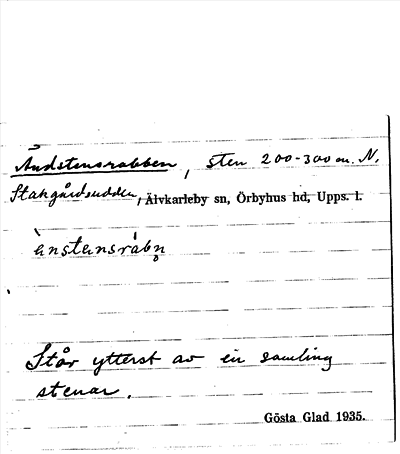 Ändstensrabben, sten 200-300 m. N.
Stakgårdsudden, Älvkarleby sn, Örbyhus hd, Upps. l.
ènstensrábn̥
Står ytterst av en samling
stenar.
Gösta Glad 1935.